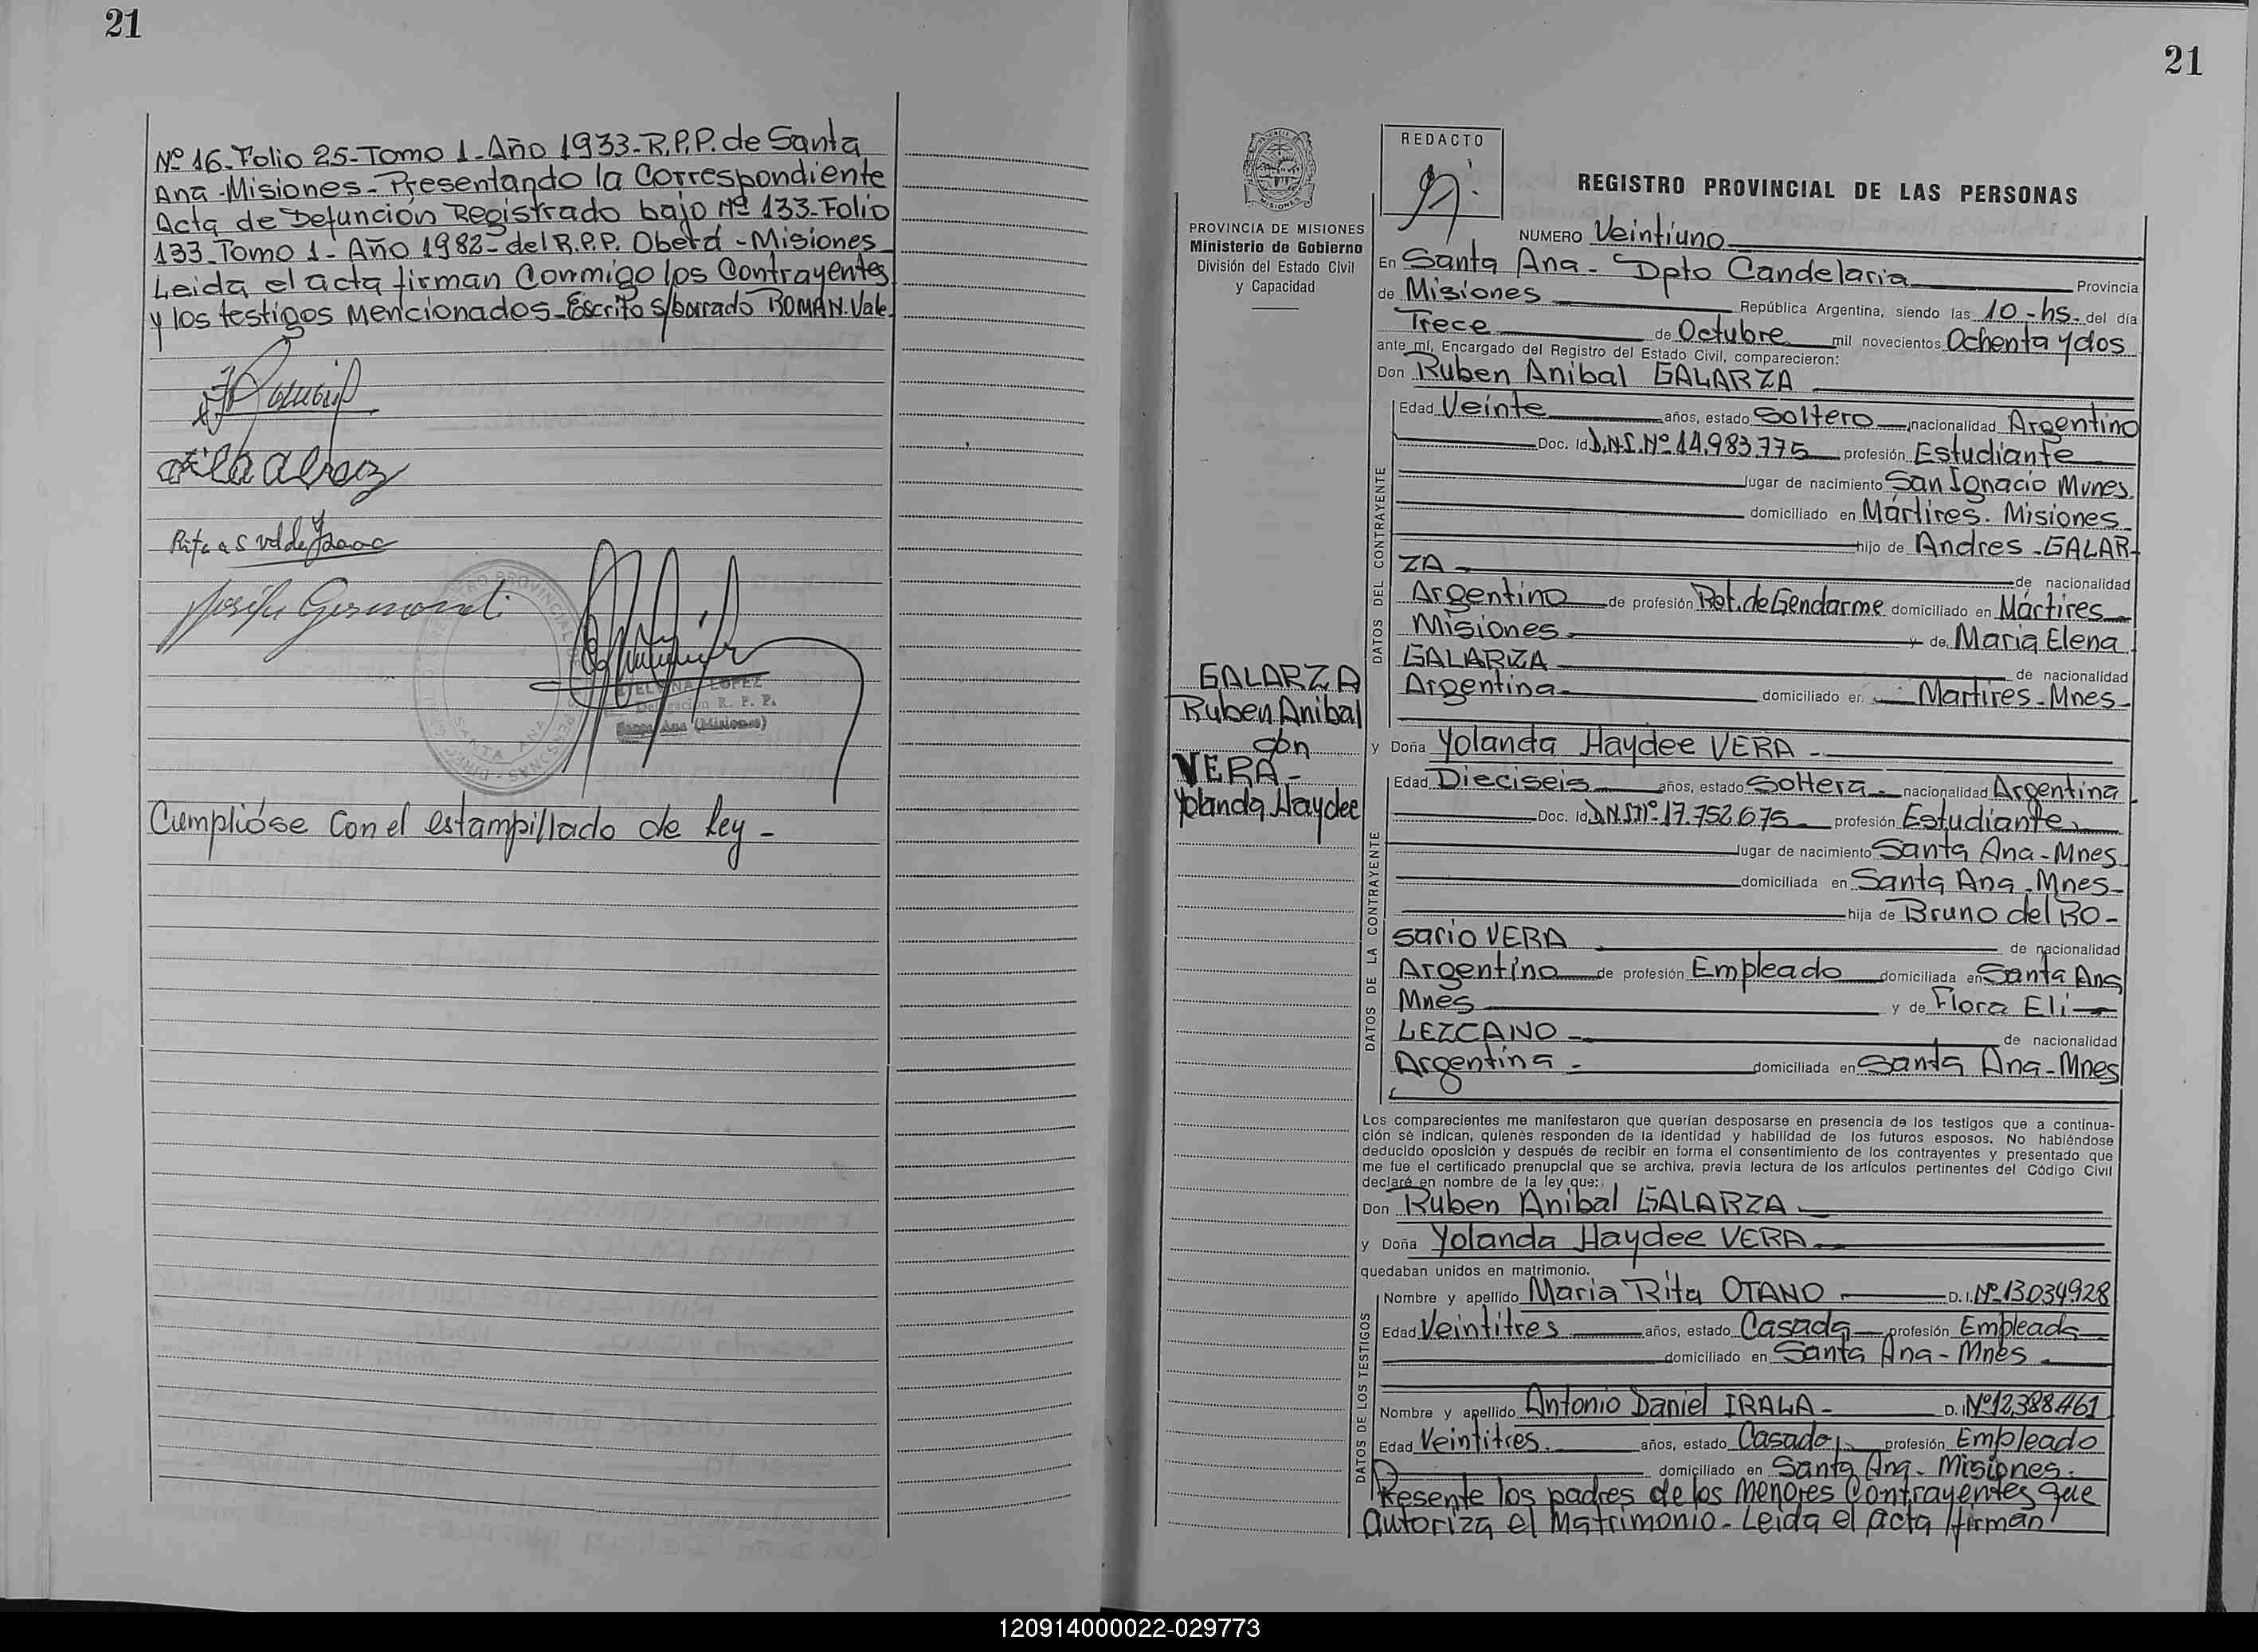 21
Nº 16-Folio 25-Tomo 1-Año 1933-R.P.P. de Santa
Ana-Misiones-Presentando la Correspondiente
Acta de Defunción Registrado bajo Nº 133-Folio
133-Tomo 1-Año 1982-del R.P.P. Oberá-Misiones
Leida el acta firman Conmigo los Contrayentes
y los testigos Mencionados-Escrito s/borrado ROMAN. Vale.
SANTA ANA
R. P. P.
Santa Ana (Misiones)
Cumplióse Con el estampillado de Ley-
21
REDACTO
REGISTRO PROVINCIAL DE LAS PERSONAS
PROVINCIA DE MISIONES
Ministerio de Gobierno
División del Estado Civil
y Capacidad
NUMERO Veintiuno
En Santa Ana- Dpto Candelaria Provincia
de Misiones República Argentina, siendo las 10-hs. del día
Trece de Octubre mil novecientos Ochenta y dos
ante mí, Encargado del Registro del Estado Civil, comparecieron:
Don Ruben Anibal GALARZA
DATOS DEL CONTRAYENTE
Edad Veinte años, estado Soltero nacionalidad Argentino
Doc. Id D.N.I. Nº 14.983.775 profesión Estudiante
lugar de nacimiento San Ignacio Mnes.
domiciliado en Mártires. Misiones
hijo de Andres-GALAR-
ZA de nacionalidad
Argentino de profesión Ret. de Gendarme domiciliado en Mártires
Misiones y de Maria Elena
GALARZA de nacionalidad
Argentina domiciliado en Martires-Mnes
GALARZA
Ruben Anibal
con
VERA-
Yolanda Haydee
y Doña Yolanda Haydee VERA-
DATOS DE LA CONTRAYENTE
Edad Dieciseis años, estado Soltera nacionalidad Argentina
Doc. Id D.N.I. Nº 17.752.675 profesión Estudiante
lugar de nacimiento Santa Ana-Mnes
domiciliada en Santa Ana-Mnes-
hija de Bruno del RO-
sario VERA de nacionalidad
Argentino de profesión Empleado domiciliada en Santa Ana
Mnes y de Flora Eli
LEZCANO de nacionalidad
Argentina- domiciliada en Santa Ana-Mnes
Los comparecientes me manifestaron que querían desposarse en presencia de los testigos que a continua-
ción se indican, quienes responden de la identidad y habilidad de los futuros esposos. No habiéndose
deducido oposición y después de recibir en forma el consentimiento de los contrayentes y presentado que
me fue el certificado prenupcial que se archiva, previa lectura de los artículos pertinentes del Código Civil
declaré en nombre de la ley que:
Don Ruben Anibal GALARZA
y Doña Yolanda Haydee VERA
quedaban unidos en matrimonio.
DATOS DE LOS TESTIGOS
Nombre y apellido Maria Rita OTANO D.I. Nº 13034928
Edad Veintitres años, estado Casada profesión Empleada
domiciliado en Santa Ana-Mnes
Nombre y apellido Antonio Daniel IRALA- D.I Nº 12.388.461
Edad Veintitres. años, estado Casado profesión Empleado
domiciliado en Santa Ana-Misiones.
Presente los padres de los menores Contrayentes que
autoriza el Matrimonio-Leida el acta firman
120914000022-029773